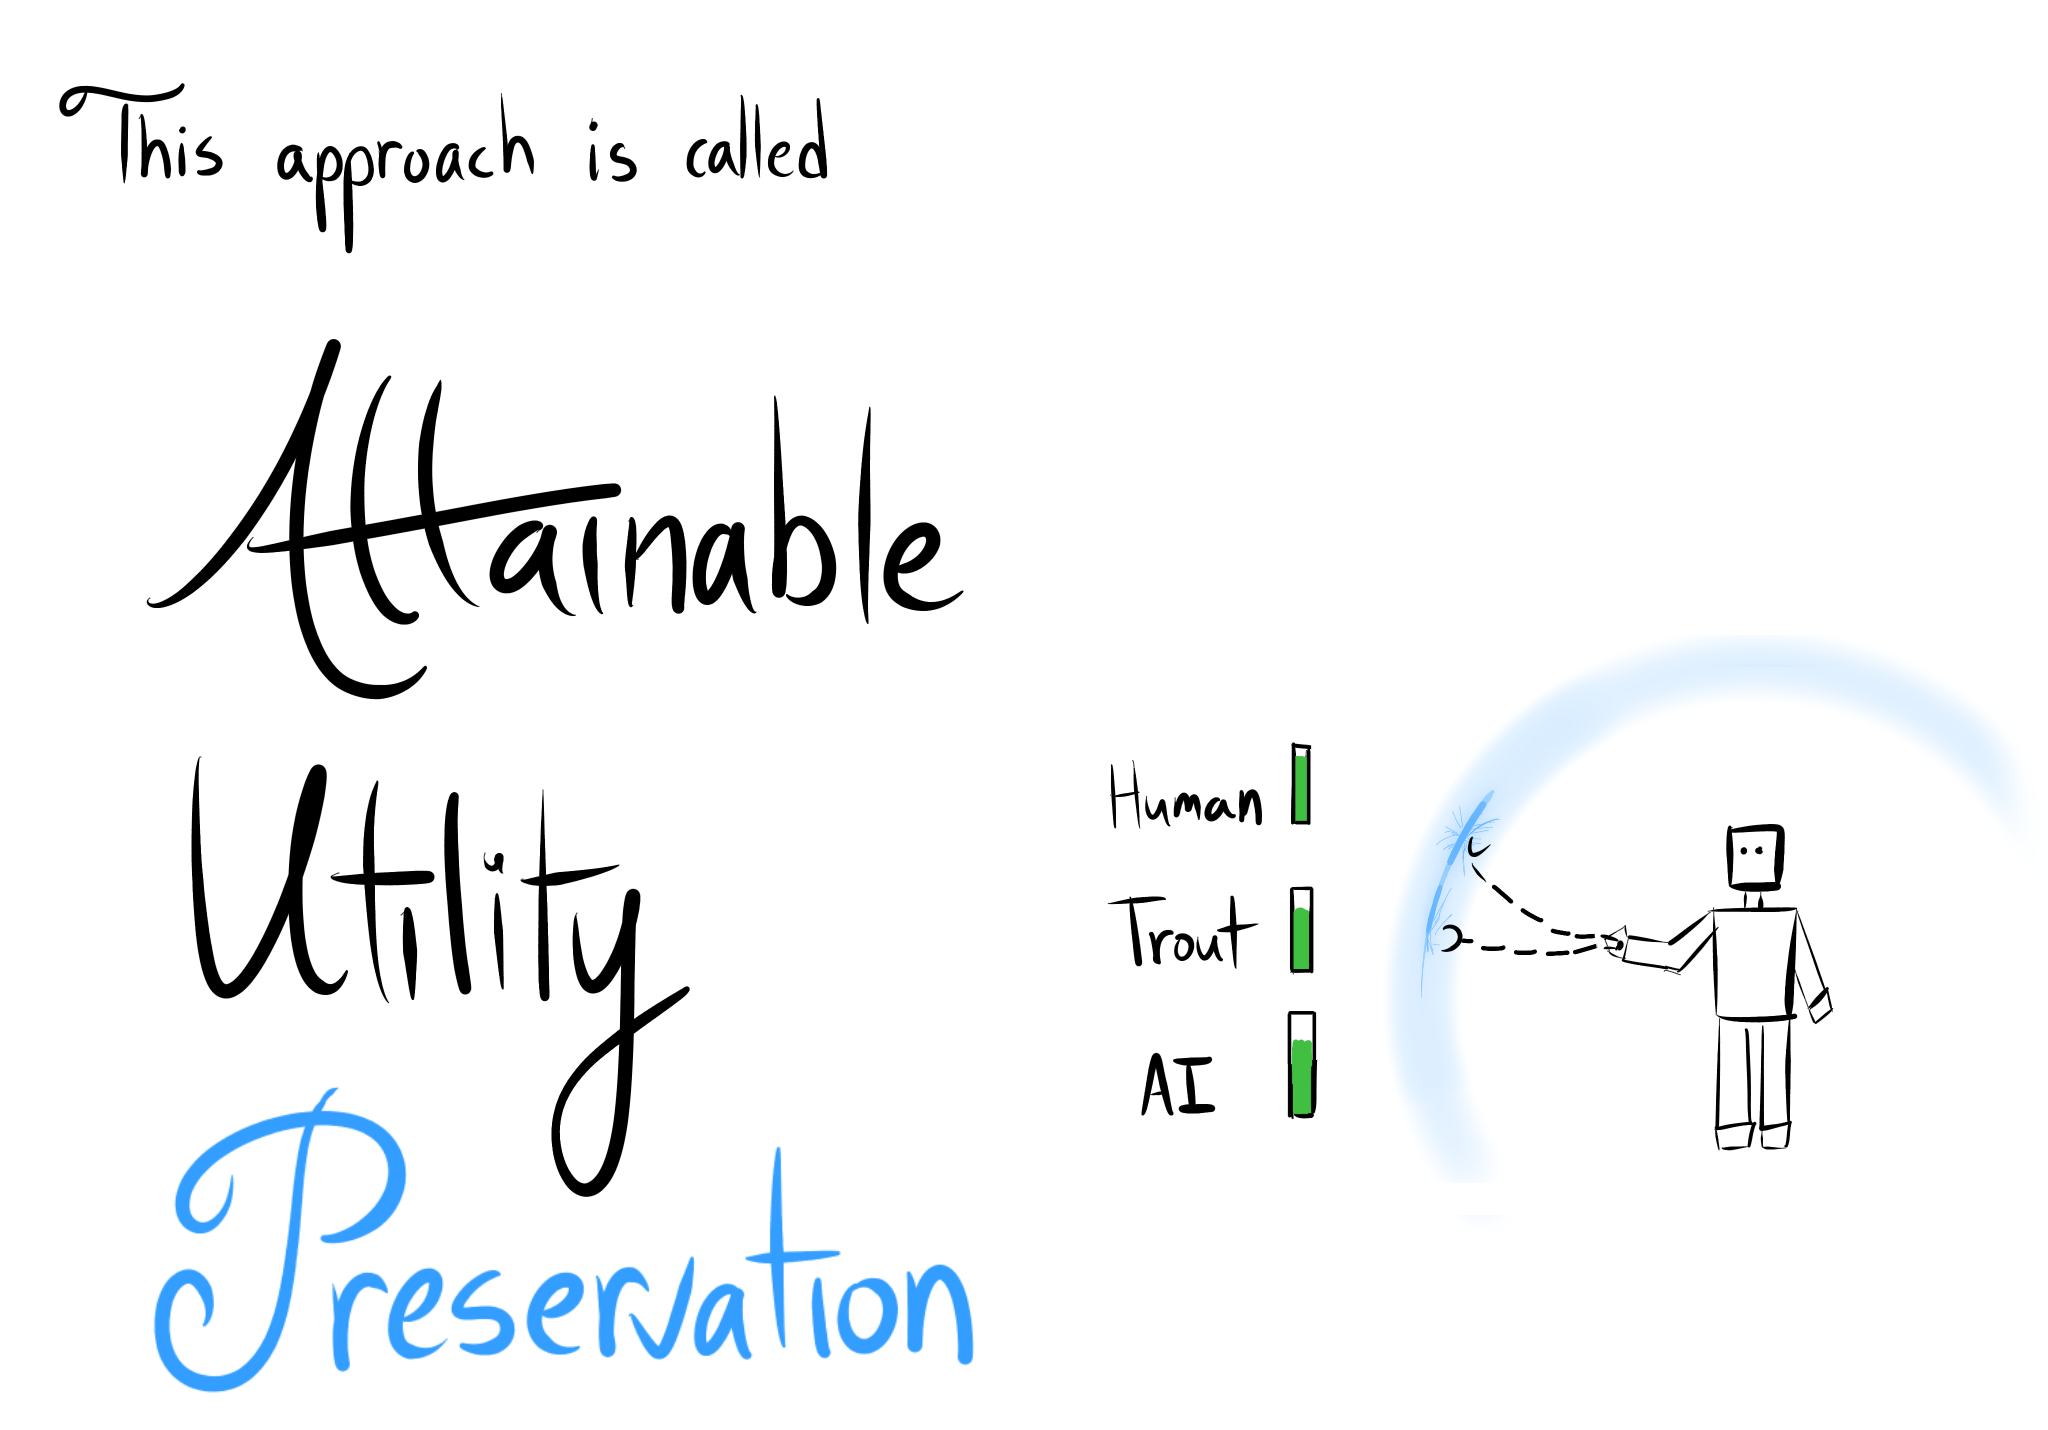 This approach is called
Attainable
Utility
Preservation
Human
Trout
AI